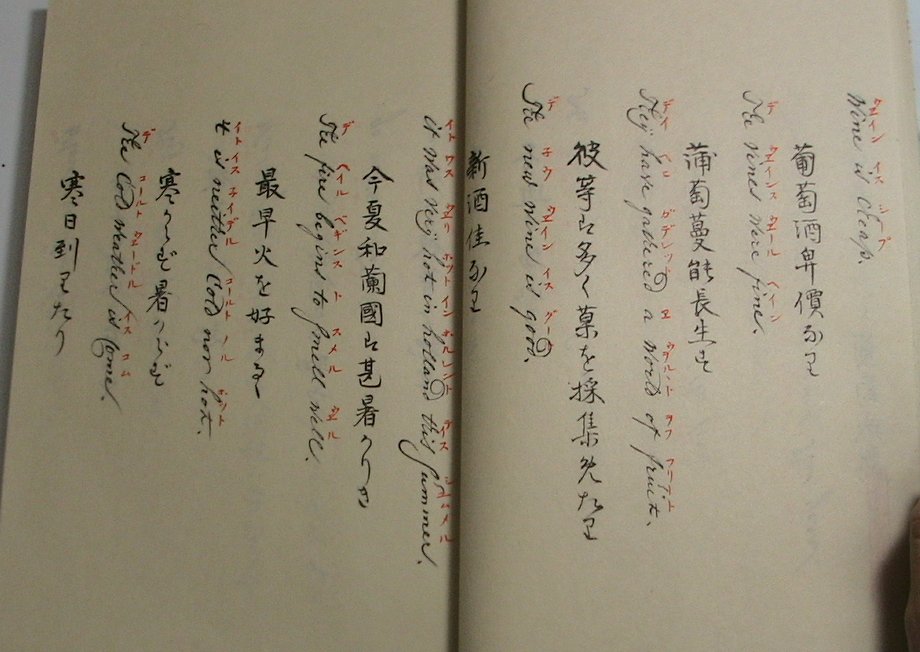 ウエイン イス シープ
Wine is cheap.
葡萄酒卑價なり
デ ウエインス ウエール ヘイン
The vines were fine.
蒲萄蔓能長生す
デイ ヘブ
They have gathered a World of fruit.
彼等は多く菓を採集めたり
デ 子ウ ウエイン イス グート
The new Wine is good.
新酒佳なり
イト ワス ウエリ ホット イン ホルレント
it Was Very hot in holland this Summer.
今夏和蘭國は甚暑かりか
デ ヘイル ベギンス ト スメル ウエル
The fire begins to Smell Well.
最早火を好まる
イト イス 子イデル コールト ノル ホット
it is neither Cold nor hot.
寒からず暑からず
デ コールト ウエードル イス コム
The Cold Weather is Come.
寒日到りたり